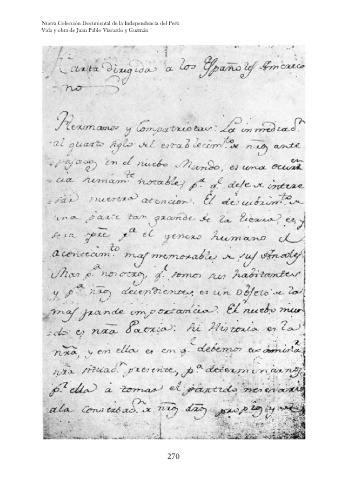 Nueva Colección Documental de la Independencia del Perú
Vida y obra de Juan Pablo Viscardo y Guzmán
Carta dirigida a los Españoles Americo
nos
Hermanos y Compatriotas: La inmediacn
al quarto siglo del establecimto de nros ante
pasados en el nuebo Mundo, es una ocurren
cia sumamte notable, pa qe dese de intere
sar nuestra atencion. El descubrimto de
una parte tan grande de la tierra, es y
será pre pa el genero humano el
acontecimto mas memorable de sus Anales
Mas pa nosotros, qe somos sus habitantes
y pa nros decendientes, es un objeto de la
mas grande importancia. El nuebo mun
do es nra Patria: su Historia es la
nra, y en ella es en qe debemos examinar
nra situacn presente, pa determinarnos
pr ella á tomar el partido nesesario
ala conserbacn de nros dros propios y
270